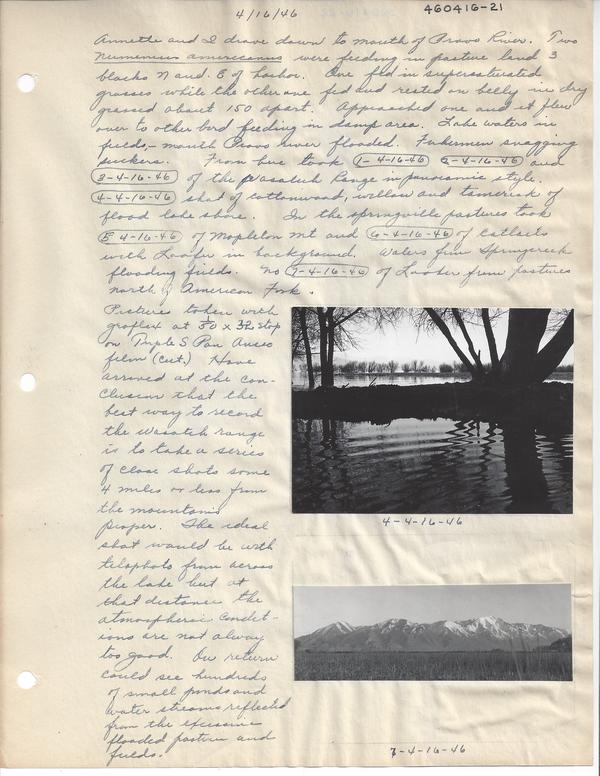 4/16/46
460416-21
Annette and I drove down to mouth of Provo River. Two
Numenius americanus were feeding in pasture land 3
blocks N and E of harbor. One fed in supersaturated
grasses while the other one fed and rested on belly in dry
grassed about 150 apart. Approached one and it flew
over to other bird feeding in damp area. Lake waters in
fields,- mouth Provo river flooded. Fishermen snagging
suckers. From here took 1-4-16-46 2-4-16-46 and
3-4-16-46 of the Wasatch Range in panoramic style.
4-4-16-46 shot of cottonwood, willow and tamerisk of
flood lake shore. In the springville pastures took
5 4-16-46 of Mapleton Mt and 6-4-16-46 of Cattails
with Loafer in background. Waters from Springcreek
flooding fields. No 7-4-16-46 of Loafer from pastures
north of American Fork.
Pictures taken with
graflex at 50 x 32 stop
on Triple S Pan Ansco
film (cut.) Have
arrived at the con-
clusion that the
best way to record
the wasatch range
is to take a series
of close shots some
4 miles or less from
the mountains
proper. The ideal
shot would be with
telephoto from across
the lake but at
that distance the
atmospheric condit-
ions are not alway
too good. On return
could see hundreds
of small ponds and
water streams reflected
from the excessive
flooded pasture and
fields.
4-4-16-46
7-4-16-46